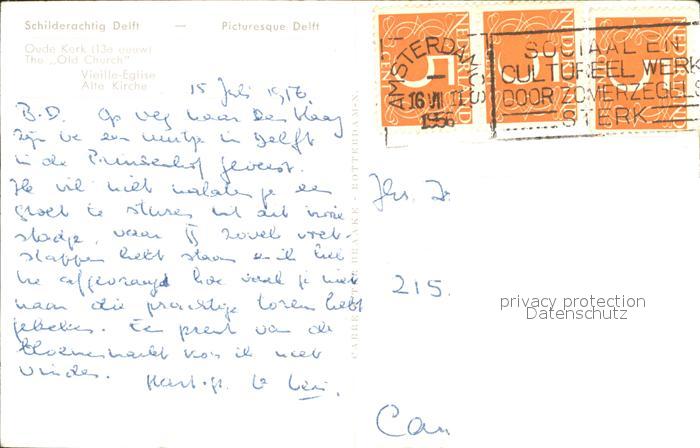 Schilderachtig Delft — Picturesque Delft
Oude Kerk (13e eeuw)
The „Old Church"
Vieille-Eglise
Alte Kirche
15 Juli 1956.
B.D. Op weg naar Den Haag
zijn we een uurtje in Delft
in de Prinsenhof geweest.
Ik wil niet nalaten je een
groet te sturen uit dit mooie
stadje, waar jij zoveel
hebt staan en ik heb
me afgevraagd hoe vaak je niet
naar die prachtige toren hebt
gekeken. Een prent van de
Bloemenmarkt kon ik niet
vinden. Hart. gr.
ROTTERDAM-N.
AMSTERDAM-C.S.
16 VII
1956
SOCIAAL EN
CULTUREEL WERK
DOOR ZOMERZEGELS
STERK
NEDERLAND
5
CENT
NEDERLAND
5
NEDERLAND
5
215.
privacy protection
Datenschutz
Can